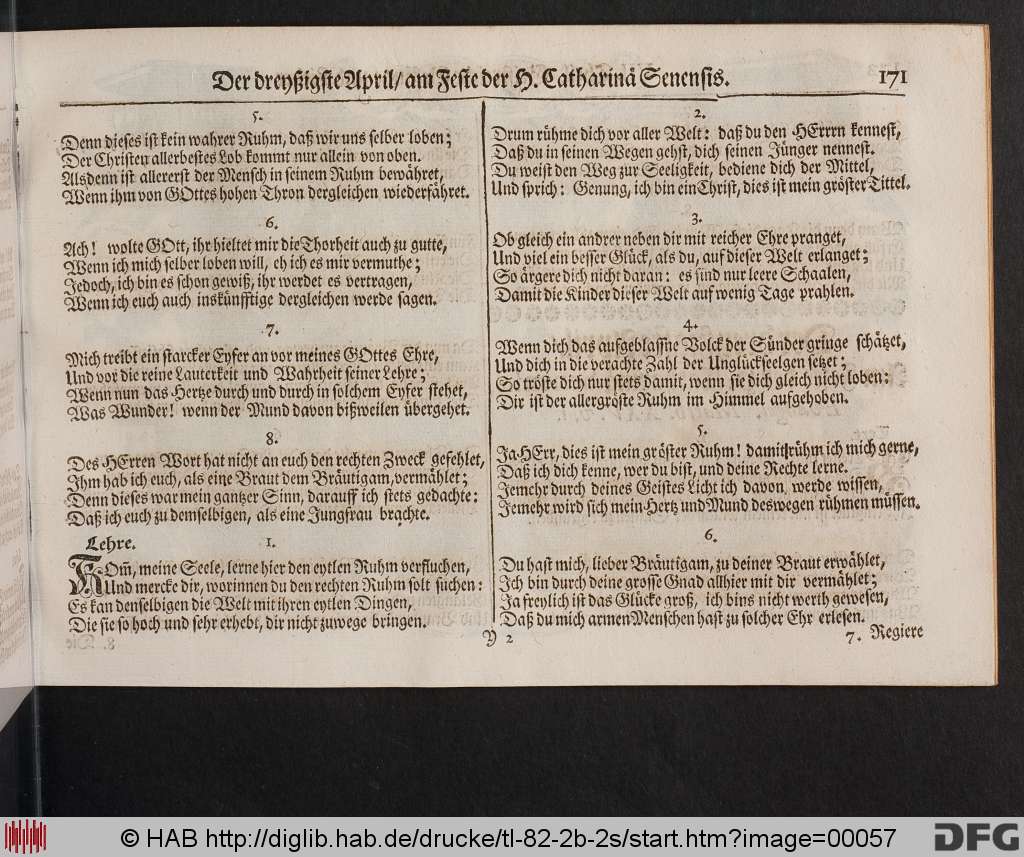 Der dreyßigste April/ am Feste der H. Catharinä Senensis.
171
5.
Denn dieses ist kein wahrer Ruhm, daß wir uns selber loben;
Der Christen allerbestes Lob kommt nur allein von oben.
Alsdenn ist allererst der Mensch in seinem Ruhm bewähret,
Wenn ihm von GOttes hohen Thron dergleichen wiederfähret.
6.
Ach! wolte GOtt, ihr hieltet mir die Thorheit auch zu gutte,
Wenn ich mich selber loben will, eh ich es mir vermuthe;
Jedoch, ich bin es schon gewiß, ihr werdet es vertragen,
Wenn ich euch auch inskünfftige dergleichen werde sagen.
7.
Mich treibt ein starcker Eyfer an vor meines GOttes Ehre,
Und vor die reine Lauterkeit und Wahrheit seiner Lehre;
Wenn nun das Hertze durch und durch in solchem Eyfer stehet,
Was Wunder! wenn der Mund davon bißweilen übergehet.
8.
Des HErren Wort hat nicht an euch den rechten Zweck gefehlet,
Ihm hab ich euch, als eine Braut dem Bräutigam, vermählet;
Denn dieses war mein gantzer Sinn, darauff ich stets gedachte:
Daß ich euch zu demselbigen, als eine Jungfrau brachte.
Lehre. 1.
Kom̃, meine Seele, lerne hier den eytlen Ruhm verfluchen,
Und mercke dir, worinnen du den rechten Ruhm solt suchen:
Es kan denselbigen die Welt mit ihren eytlen Dingen,
Die sie so hoch und sehr erhebt, dir nicht zuwege bringen.
2.
Drum rühme dich vor aller Welt: daß du den HErrn kennest,
Daß du in seinen Wegen gehst, dich seinen Jünger nennest.
Du weist den Weg zur Seeligkeit, bediene dich der Mittel,
Und sprich: Genung, ich bin ein Christ, dies ist mein gröster Tittel.
3.
Ob gleich ein andrer neben dir mit reicher Ehre pranget,
Und viel ein besser Glück, als du, auf dieser Welt erlanget;
So ärgere dich nicht daran: es sind nur leere Schaalen,
Damit die Kinder dieser Welt auf wenig Tage prahlen.
4.
Wenn dich das aufgeblassne Volck der Sünder gringe schätzet,
Und dich in die verachte Zahl der Unglückseelgen setzet;
So tröste dich nur stets damit, wenn sie dich gleich nicht loben:
Dir ist der allergröste Ruhm im Himmel aufgehoben.
5.
Ja HErr, dies ist mein gröster Ruhm! damit rühm ich mich gerne,
Daß ich dich kenne, wer du bist, und deine Rechte lerne.
Jemehr durch deines Geistes Licht ich davon werde wissen,
Jemehr wird sich mein Hertz und Mund deswegen rühmen müssen.
6.
Du hast mich, lieber Bräutigam, zu deiner Braut erwählet,
Ich bin durch deine grosse Gnad allhier mit dir vermählet;
Ja freylich ist das Glücke groß, ich bins nicht werth gewesen,
Daß du mich armen Menschen hast zu solcher Ehr erlesen.
Y 2
7. Regiere
© HAB http://diglib.hab.de/drucke/tl-82-2b-2s/start.htm?image=00057
DFG